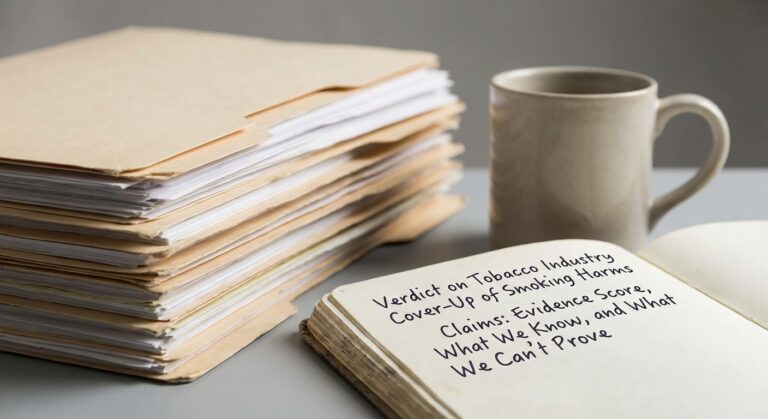 Verdict on Tobacco Industry
Cover-Up of Smoking Harms
Claims: Evidence Score,
What We Know, and What
We Can't Prove